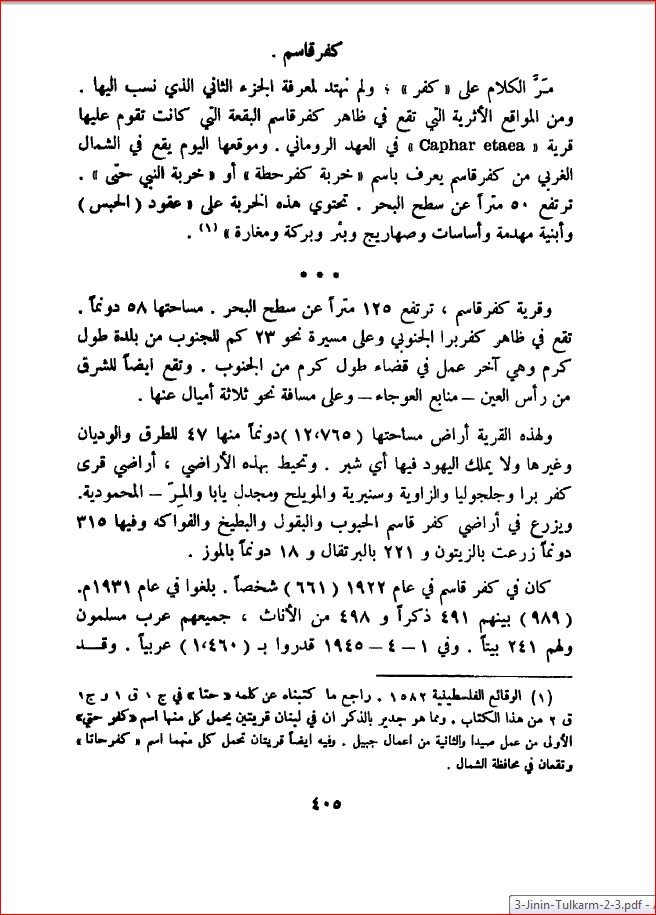 كفر قاسم .
مَرَّ الكلام على « كفر » ؛ ولم نهتد لمعرفة الجزء الثاني الذي نسب اليها .
ومن المواقع الأثرية التي تقع في ظاهر كفر قاسم البقعة التي كانت تقوم عليها
قرية « Caphar etaea » في العهد الروماني . وموقعها اليوم يقع في الشمال
الغربي من كفر قاسم يعرف باسم « خربة كفر حطة » أو « خربة النبي حتّى » .
ترتفع ٥٠ متراً عن سطح البحر . تحتوي هذه الخربة على « عقود ( الحبس )
وأبنية مهدمة وأساسات وصهاريج وبئر وبركة ومغارة » (١) .
* * *
وقرية كفر قاسم ، ترتفع ١٢٥ متراً عن سطح البحر . مساحتها ٥٨ دونماً .
تقع في ظاهر كفر برا الجنوبي وعلى مسيرة نحو ٢٣ كم للجنوب من بلدة طول
كرم وهي آخر عمل في قضاء طول كرم من الجنوب . وتقع ايضاً للشرق
من رأس العين – منابع العوجاء – وعلى مسافة نحو ثلاثة أميال عنها .
ولهذه القرية أراض مساحتها ( ١٢،٧٦٥ ) دونماً منها ٤٧ للطرق والوديان
وغيرها ولا يملك اليهود فيها أي شبر . وتحيط بهذه الأراضي ، أراضي قرى
كفر برا وجلجوليا والزاوية وسنيرية والمويلح ومجدل يابا والمِرّ – المحمودية.
ويزرع في أراضي كفر قاسم الحبوب والبقول والبطيخ والفواكه وفيها ٣١٥
دونماً زرعت بالزيتون و ٢٢١ بالبرتقال و ١٨ دونماً بالموز .
كان في كفر قاسم في عام ١٩٢٢ ( ٦٦١ ) شخصاً . بلغوا في عام ١٩٣١م.
( ٩٨٩ ) بينهم ٤٩١ ذكراً و ٤٩٨ من الأناث ، جميعهم عرب مسلمون
ولهم ٢٤١ بيتاً . وفي ١ – ٤ – ١٩٤٥ قدروا بـ ( ١،٤٦٠ ) عربياً . وقــد
(١) الوقائع الفلسطينية ١٥٨٢ . راجع ما كتبناه عن كلمه « حتا » في ج ١ ق ١ و ج ١
ق ٢ من هذا الكتاب . ومما هو جدير بالذكر ان في لبنان قريتين يحمل كل منها اسم « كفر حتي »
الأولى من عمل صيدا والثانية من اعمال جبيل . وفيه ايضاً قريتان تحمل كل منهما اسم « كفر حاتا »
وتقعان في محافظة الشمال .
٤٠٥
3-Jinin-Tulkarm-2-3.pdf - A